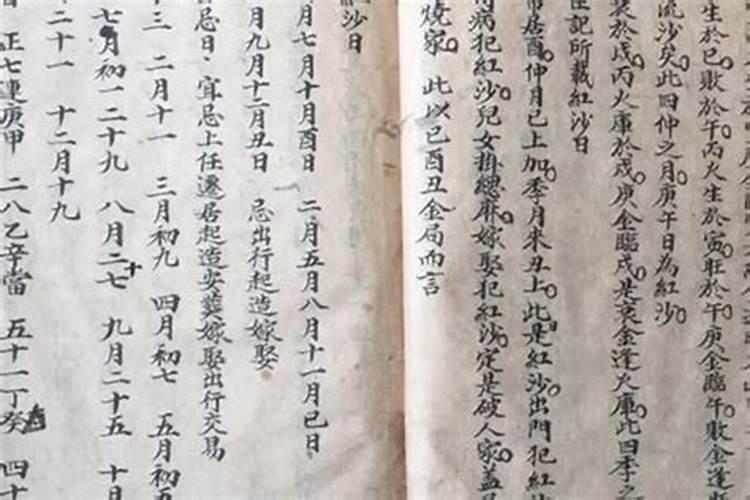 生於巳敗於午丙火生於寅旺於午庚金臨午敗金逢
流沙矣此四仲之月庚午日為紅沙
葵於戌丙火庫於戌庚金臨戌是衰金逢火庫此四季之
記所載紅沙日
居酉仲月已上加季月未丑上此是紅沙出門犯紅
病犯紅沙兒女掛總麻嫁娶犯紅沙定是破人家蓋
燒家 此以巳酉丑金局而言
紅沙日
月七月十月酉日 二月五月八月十一月巳日
月九月十二月丑日 忌出行起造嫁娶
忌日 宜忌上任遷居起造安葬嫁娶出行交易
十三 二月十一 三月初九 四月初七 五月初五
七月初一二十九 八月二十七 九月二十五 十月
二十一 十二月十九
正七連庚甲 二八乙辛當 五十一丁癸 四十